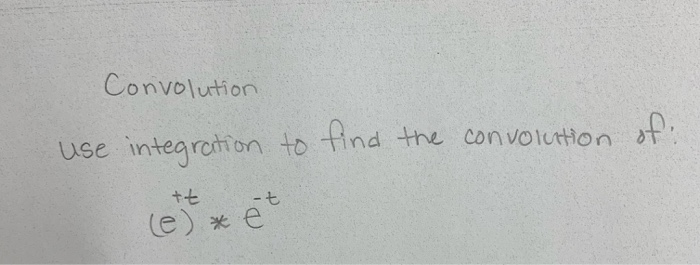 Convolution
use integration to find the convolution of:
(e)^{+t} * e^{-t}